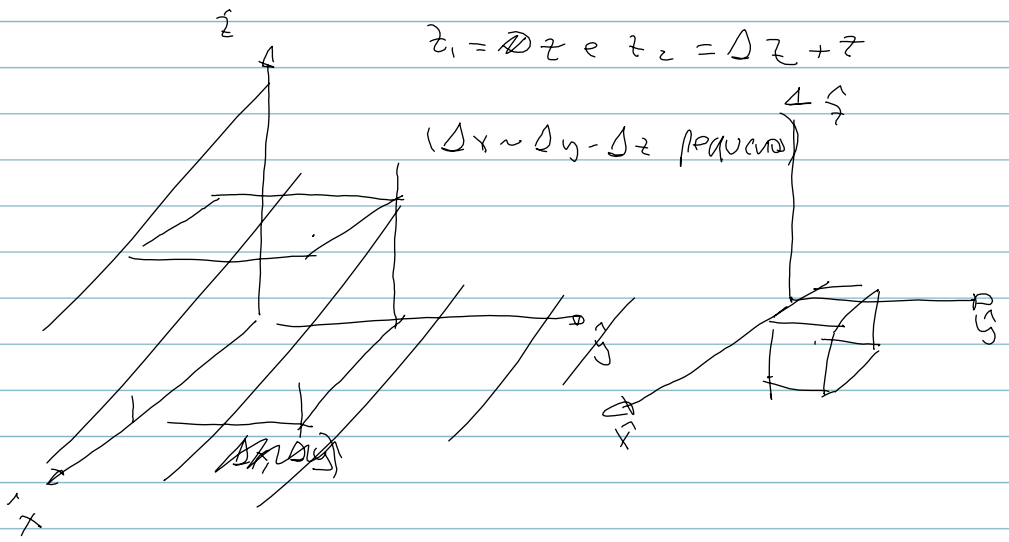 ẑ
z₁ = z e z₂ = Δz + z
ẑ
(Δx ~ Δy - Δz pequenos)
ŷ
ŷ
x̂
x̂